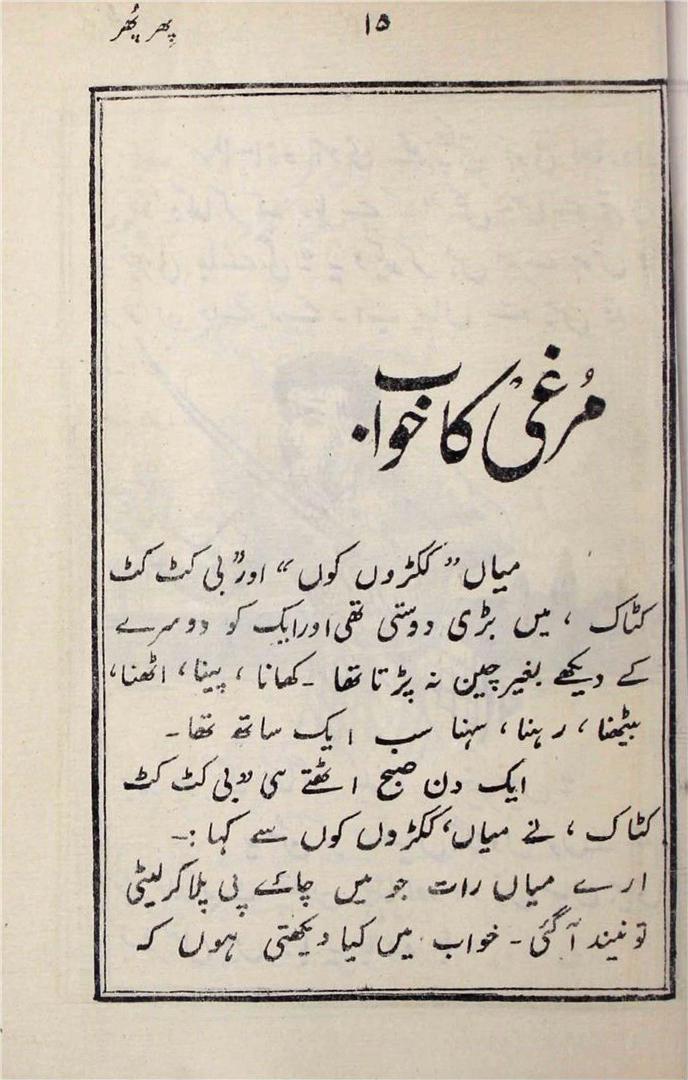 پھر پھُر ۱۵
مُرغی کا خواب
میاں ”ککڑوں کوں“ اور ”بی کٹ کٹ
کٹاک، میں بڑی دوستی تھی اور ایک کو دوسرے
کے دیکھے بغیر چین نہ پڑتا تھا ۔ کھانا ، پینا ، اٹھنا ،
بیٹھنا ، رہنا ، سہنا سب ایک ساتھ تھا ۔
ایک دن صبح اٹھتے ہی ”بی کٹ کٹ
کٹاک ، نے میاں ’ککڑوں کوں سے کہا :۔
ارے میاں رات جو میں چائے پی پلا کر لیٹی
تو نیند آ گئی ۔ خواب میں کیا دیکھتی ہوں کہ